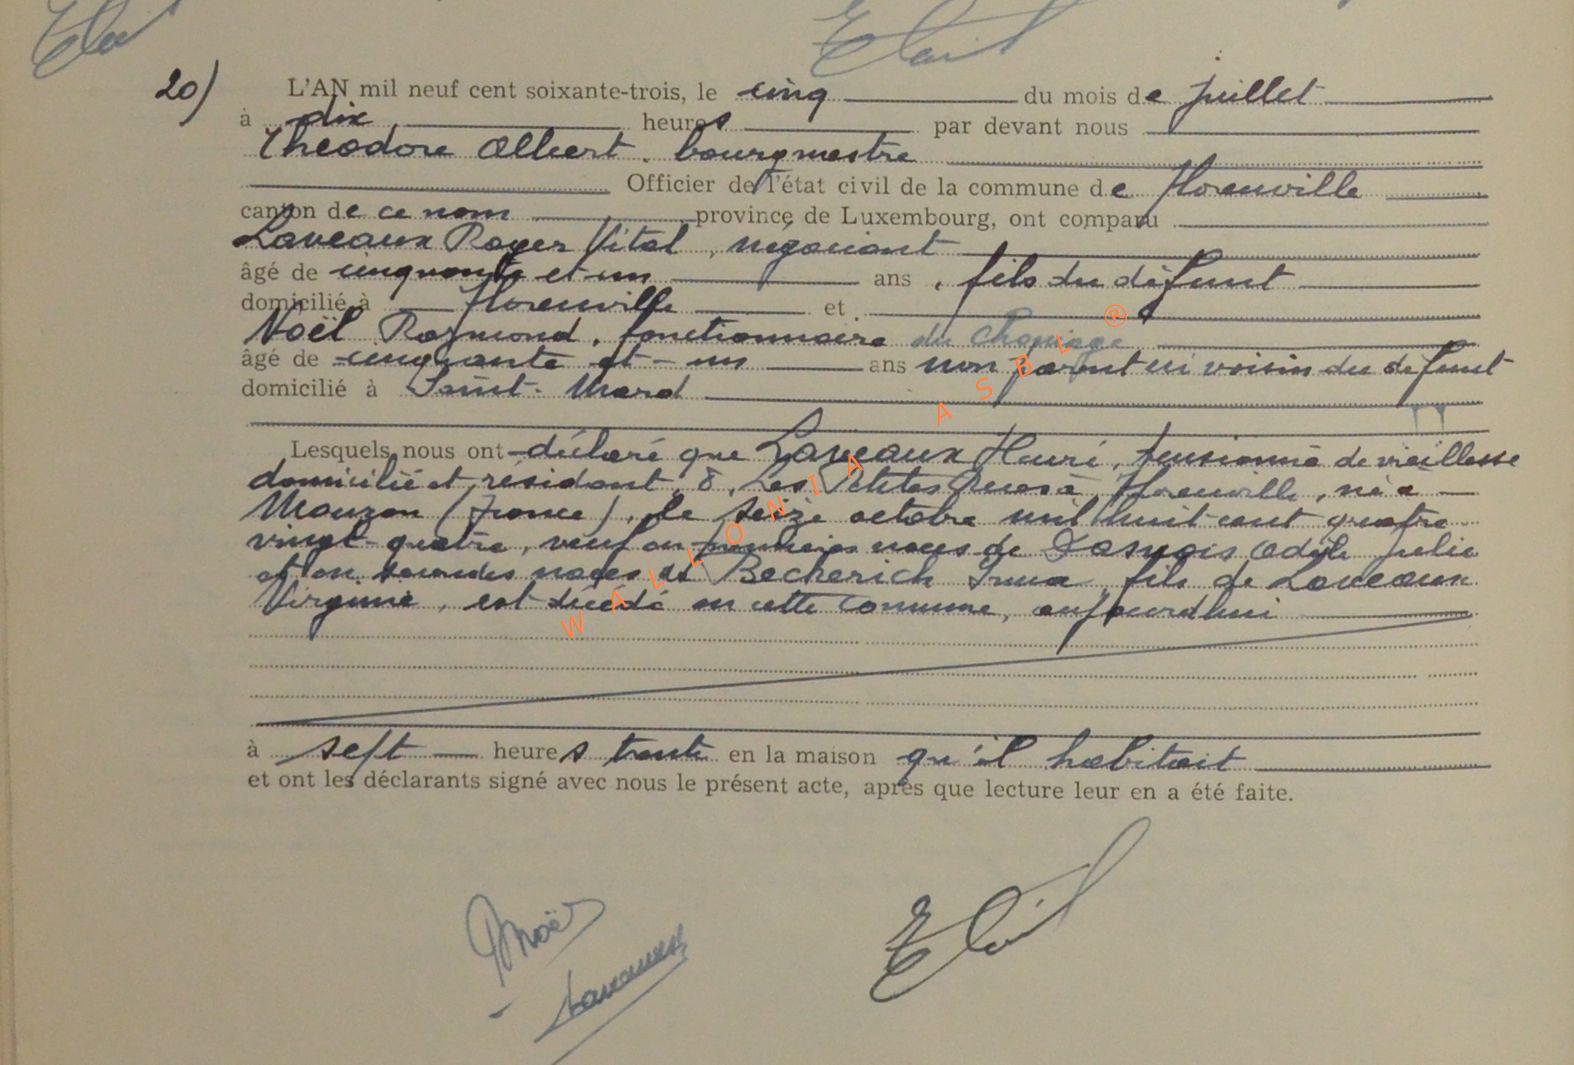 20) L'AN mil neuf cent soixante-trois, le cinq du mois de juillet
à dix heures par devant nous
Théodore Albert, bourgmestre
Officier de l'état civil de la commune de Florenville
canton de ce nom province de Luxembourg, ont comparu
Laveaux Roger Vital, négociant
âgé de cinquante et un ans, fils du défunt
domicilié à Florenville et
Noël Raymond, fonctionnaire du chômage
âgé de cinquante et-un ans non parent ni voisin du défunt
domicilié à Saint-Mard
Lesquels nous ont déclaré que Laveaux Henri, pensionné de vieillesse
domicilié et résidant, 8, Les Petites à Florenville, né à
Mouzon (France), le seize octobre mil huit cent quatre
vingt-quatre, veuf en premières noces de Odyle Julie
et en secondes noces de Becherich Irma, fils de Laveaux
Virginie, est décédé en cette commune, aujourd'hui
à sept heures trente en la maison qu'il habitait
et ont les déclarants signé avec nous le présent acte, après que lecture leur en a été faite.
Noël
Laveaux
WALLONIA ASBL ®